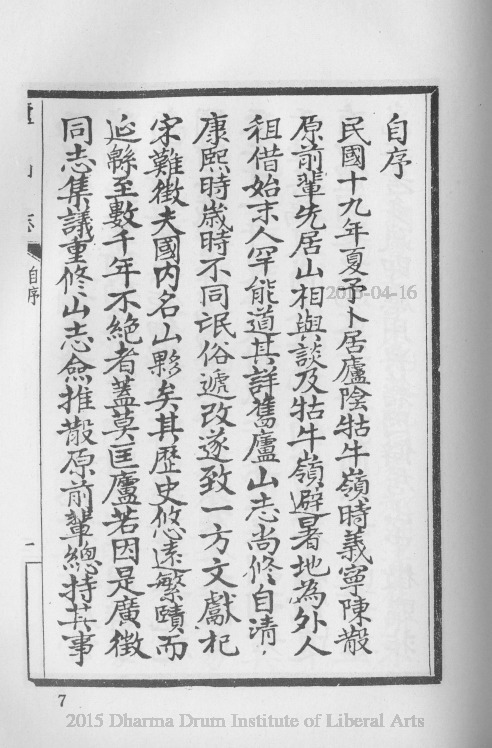 自序
民國十九年夏予卜居廬陰牯牛嶺時義寧陳散
原前輩先居山相與談及牯牛嶺避暑地為外人
祖借始末人罕能道其詳舊廬山志尚修自清
康熙時歲時不同氓俗遞改遂致一方文獻杞
宋難徵夫國內名山夥矣其歷史悠遠繁賾而
延緜至數千年不絕者蓋莫匡廬若因是廣徵
同志集議重修山志僉推散原前輩總持其事
廬山志
自序
一
7
2015-04-16
2015 Dharma Drum Institute of Liberal Arts